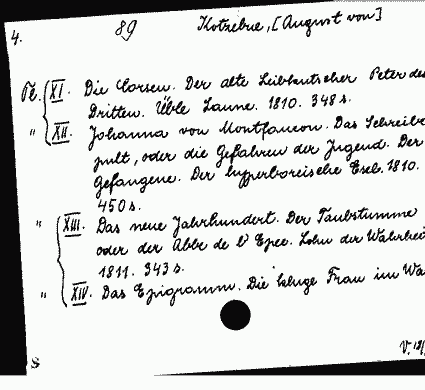 4. 89 Kotzebue, [August von]
Th. XI. Die Corsen. Der alte Leibkutscher Peter des
Dritten. Üble Laune. 1810. 348 s.
" XII. Johanna von Montfaucon. Das Schreibe
pult, oder die Gefahren der Jugend. Der
Gefangene. Der hyperboreische Esel. 1810.
450 s.
" XIII. Das neue Jahrhundert. Der Taubstumme
oder der Abbe de l'Epee. Lohn der Wahrhei
1811. 343 s.
" XIV. Das Epigramm. Die kluge Frau im Wa
V. 12/
S